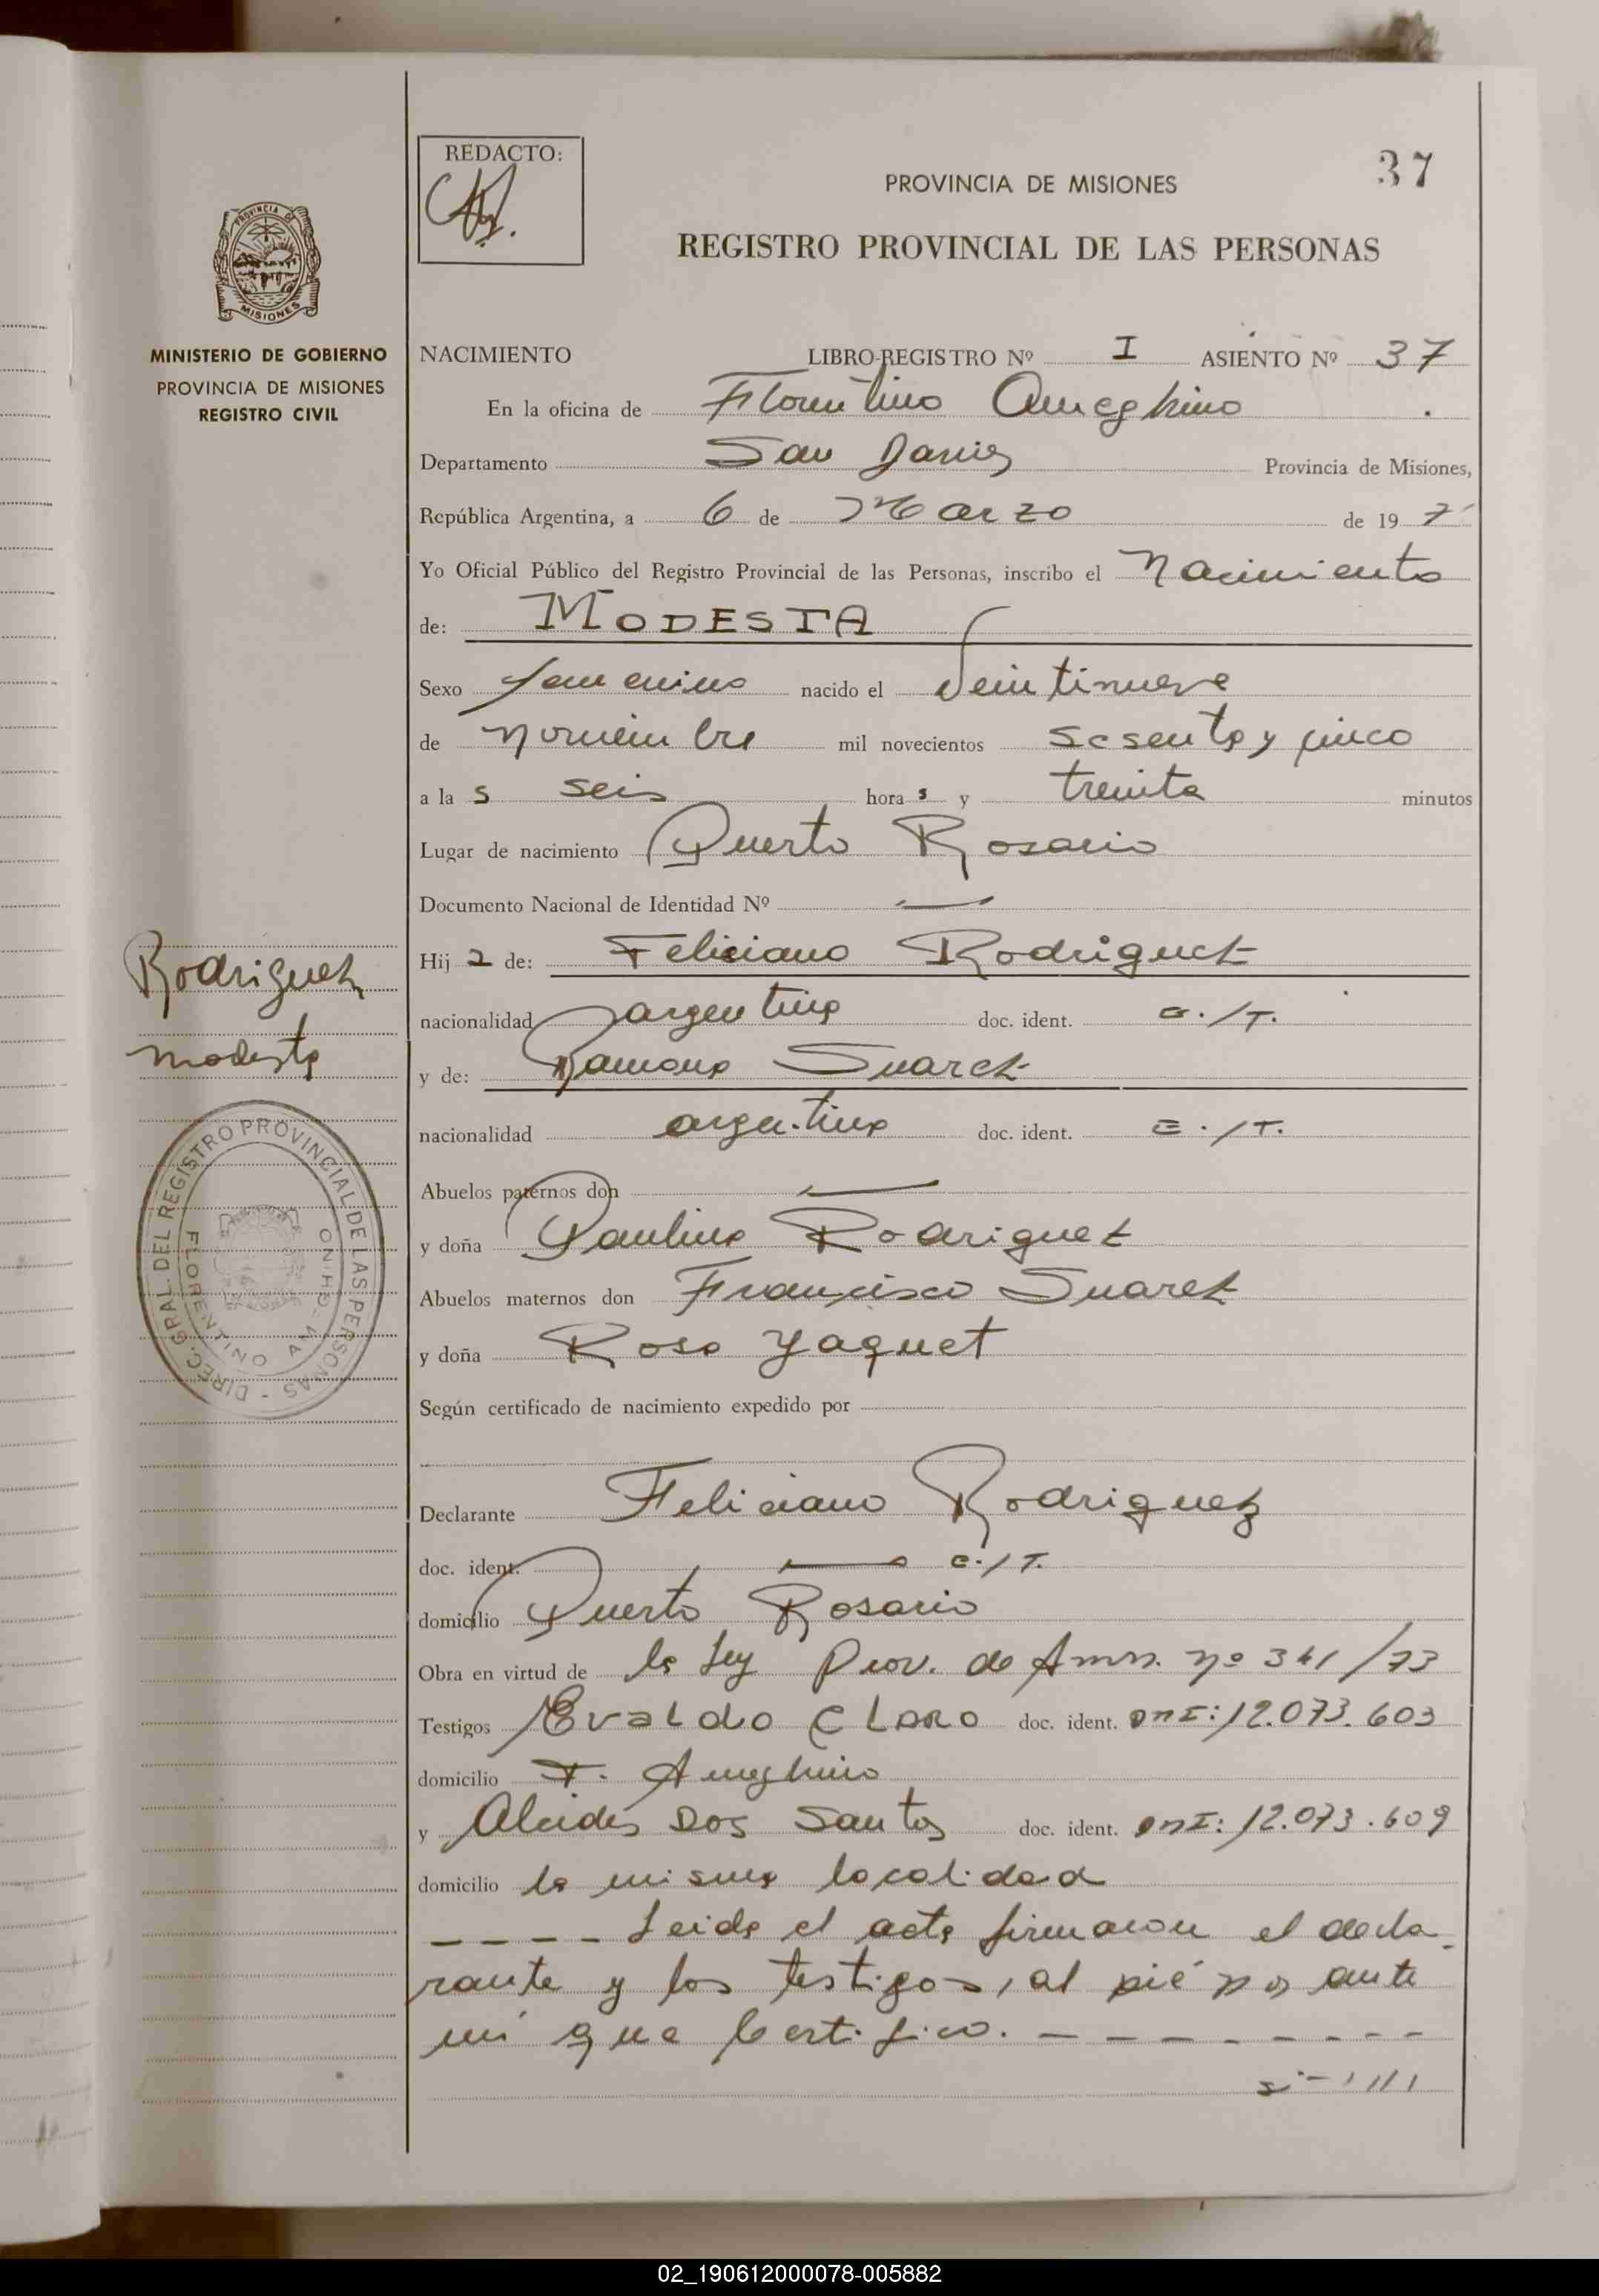 REDACTO:
37
PROVINCIA DE MISIONES
REGISTRO PROVINCIAL DE LAS PERSONAS
PROVINCIA DE
MISIONES
MINISTERIO DE GOBIERNO
PROVINCIA DE MISIONES
REGISTRO CIVIL
NACIMIENTO LIBRO-REGISTRO Nº I ASIENTO Nº 37
En la oficina de Florentino Ameghino
Departamento San Javier Provincia de Misiones,
República Argentina, a 6 de Marzo de 19 7
Yo Oficial Público del Registro Provincial de las Personas, inscribo el Nacimiento
de: MODESTA
Sexo femenino nacido el Veintinueve
de noviembre mil novecientos sesenta y cinco
a la s seis hora s y treinta minutos
Lugar de nacimiento Puerto Rosario
Documento Nacional de Identidad Nº —
Hij a de: Feliciano Rodriguez
nacionalidad argentina doc. ident. /T.
y de: Ramona Suarez
nacionalidad argentina doc. ident. /T.
Abuelos paternos don —
y doña Paulina Rodriguez
Abuelos maternos don Francisco Suarez
y doña Rosa Yaquet
Según certificado de nacimiento expedido por
Declarante Feliciano Rodriguez
doc. ident. — C./T.
domicilio Puerto Rosario
Obra en virtud de la Ley Prov. de Amn. nº 341/73
Testigos Evaldo Claro doc. ident. DNI: 12.073.603
domicilio F. Ameghino
y Alcides Dos Santos doc. ident. DNI: 12.073.609
domicilio la misma localidad
---- Leida el acta firmaron el decla-
rante y los testigos, al pié ante
mi que Certifico. ---------
Rodriguez
Modesta
DIREC. GRAL. DEL REGISTRO PROVINCIAL DE LAS PERSONAS -
FLORENTINO AMEGHINO
02_190612000078-005882